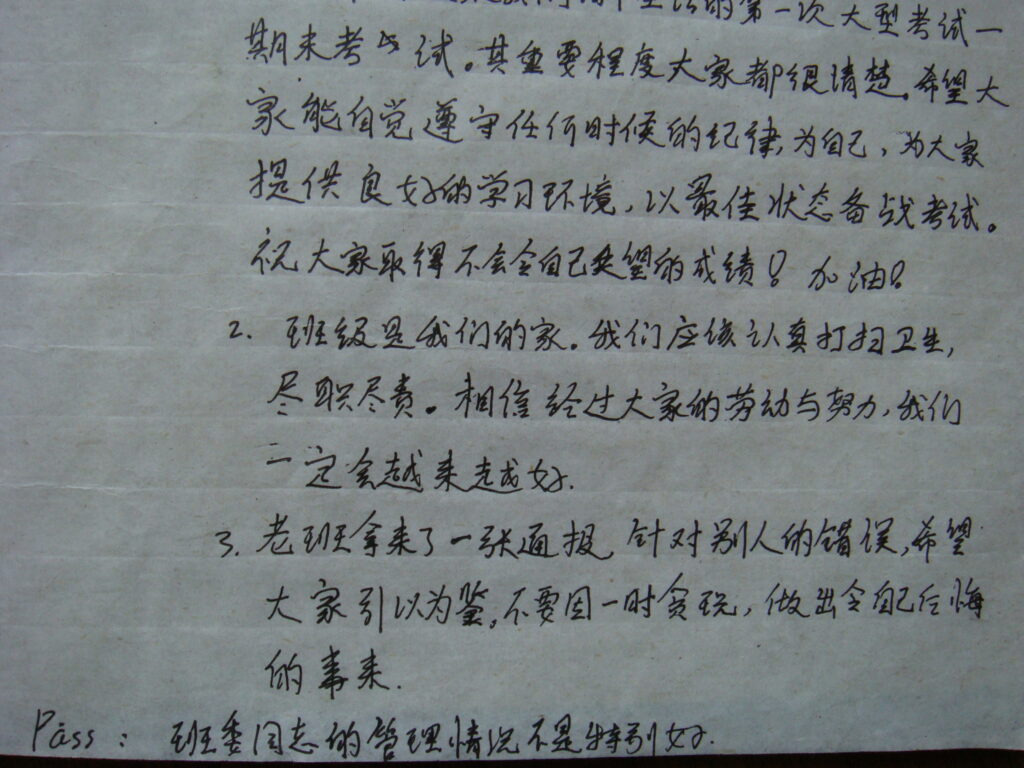 的第一次大型考试一
期末考试。其重要程度大家都很清楚。希望大
家能自觉遵守任何时候的纪律,为自己,为大家
提供良好的学习环境,以最佳状态备战考试。
祝大家取得不会令自己失望的成绩!加油!
2. 班级是我们的家。我们应该认真打扫卫生,
尽职尽责。相信经过大家的劳动与努力,我们
一定会越来越好.
3. 老班拿来了一张通报,针对别人的错误,希望
大家引以为鉴。不要因一时贪玩,做出令自己后悔
的事来.
Pass: 班委同志的管理情况不是特别好.